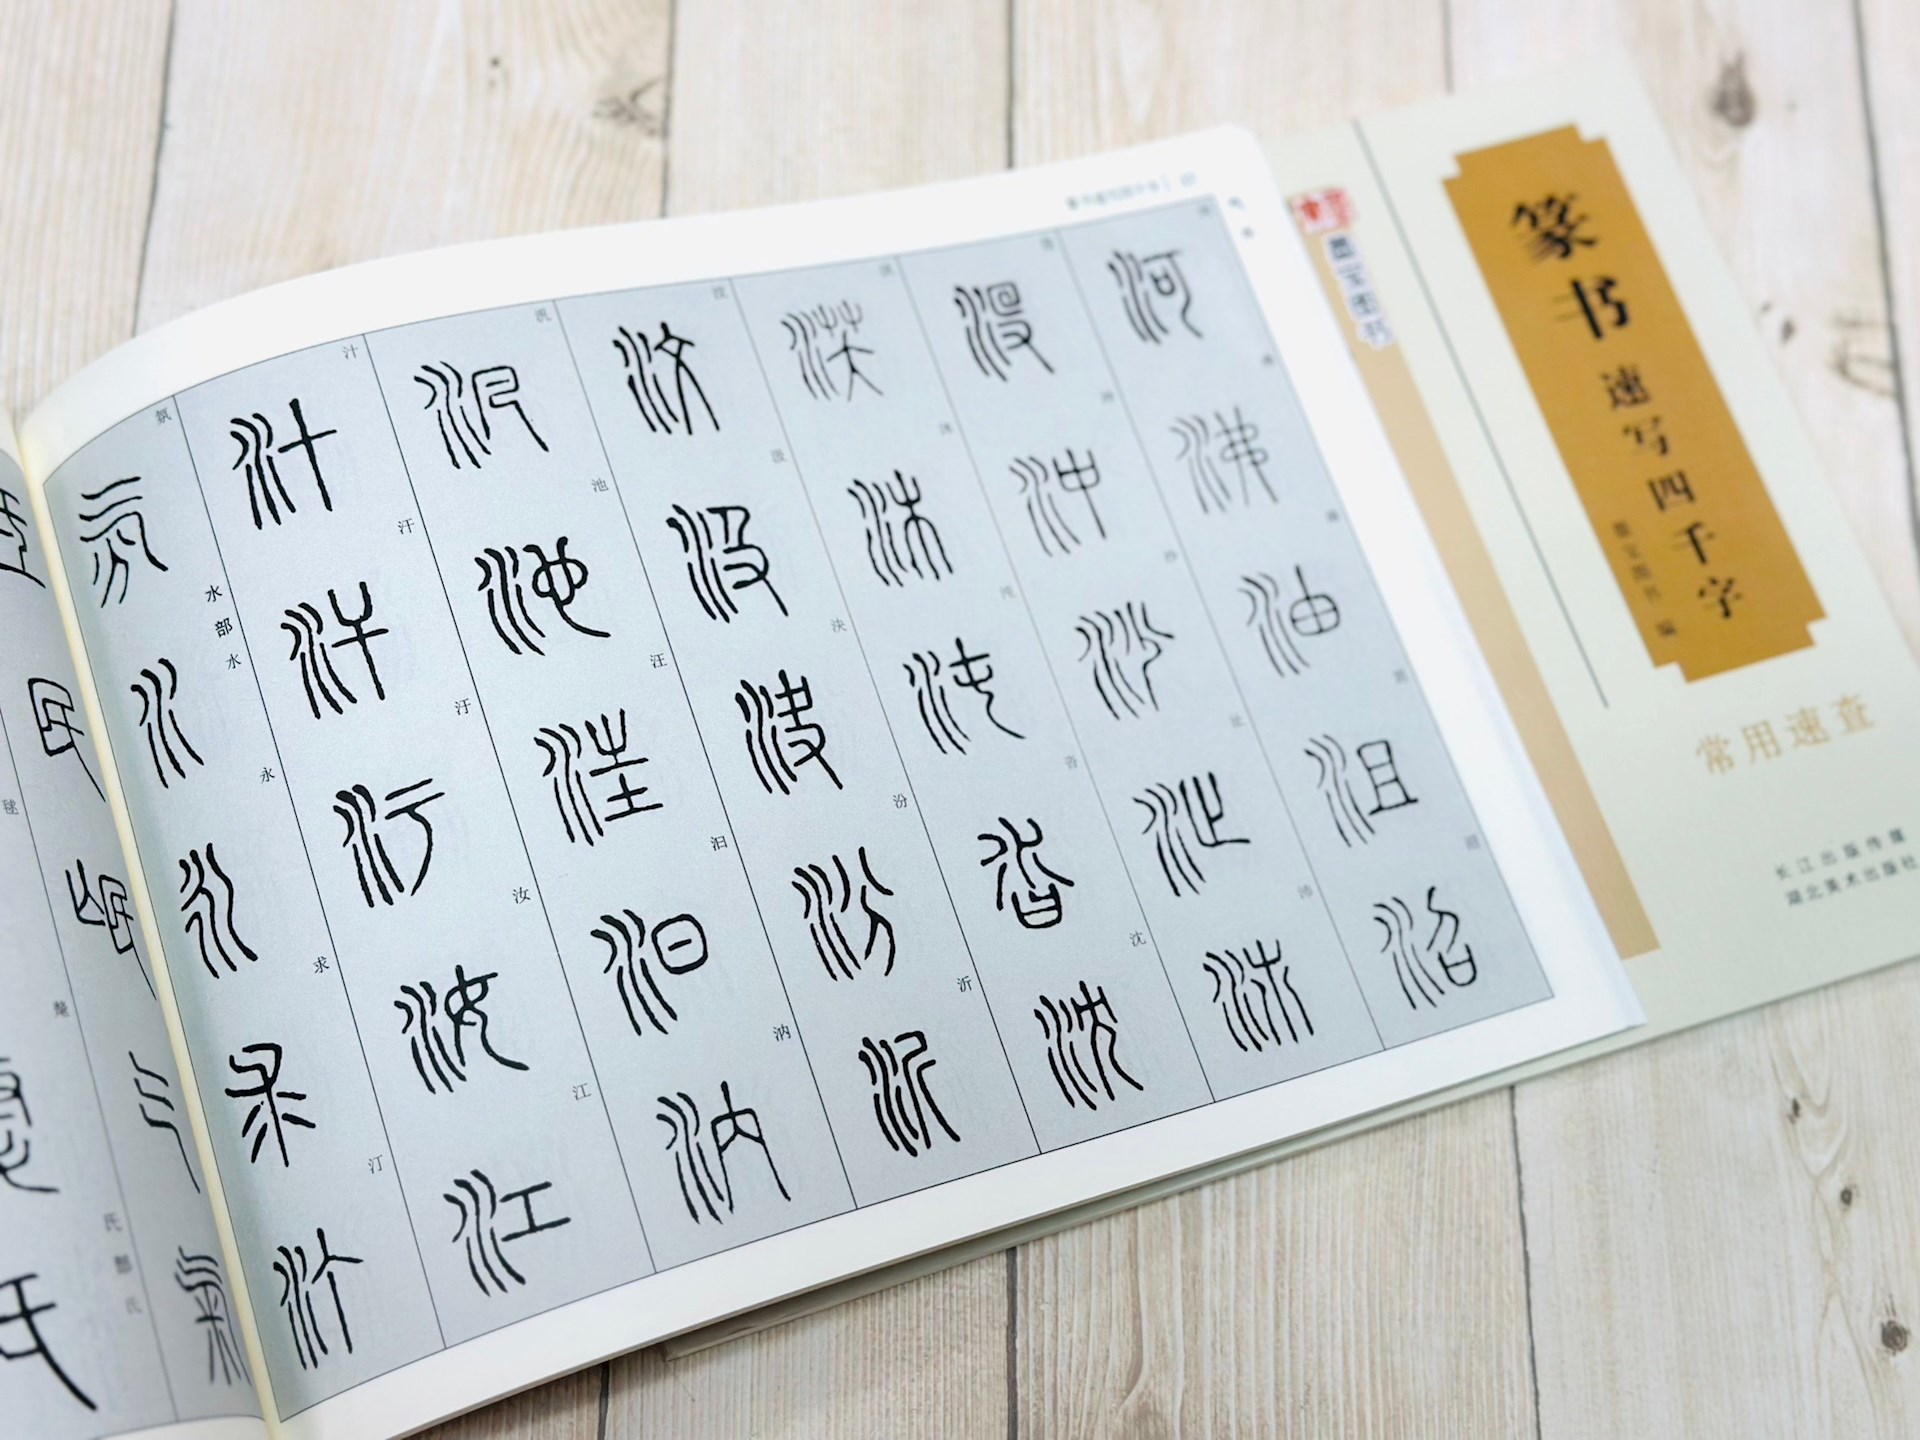 氏部
氏
氛
水部
水
永
求
汀
汁
汗
汙
汝
江
汎
池
汪
汭
汶
汲
決
汾
沂
沃
沐
沌
沓
沈
沒
沖
沙
沚
沛
河
沸
油
沮
沼
墨宝图书
篆书速写四千字
墨宝图书 编
常用速查
长江出版传媒
湖北美术出版社